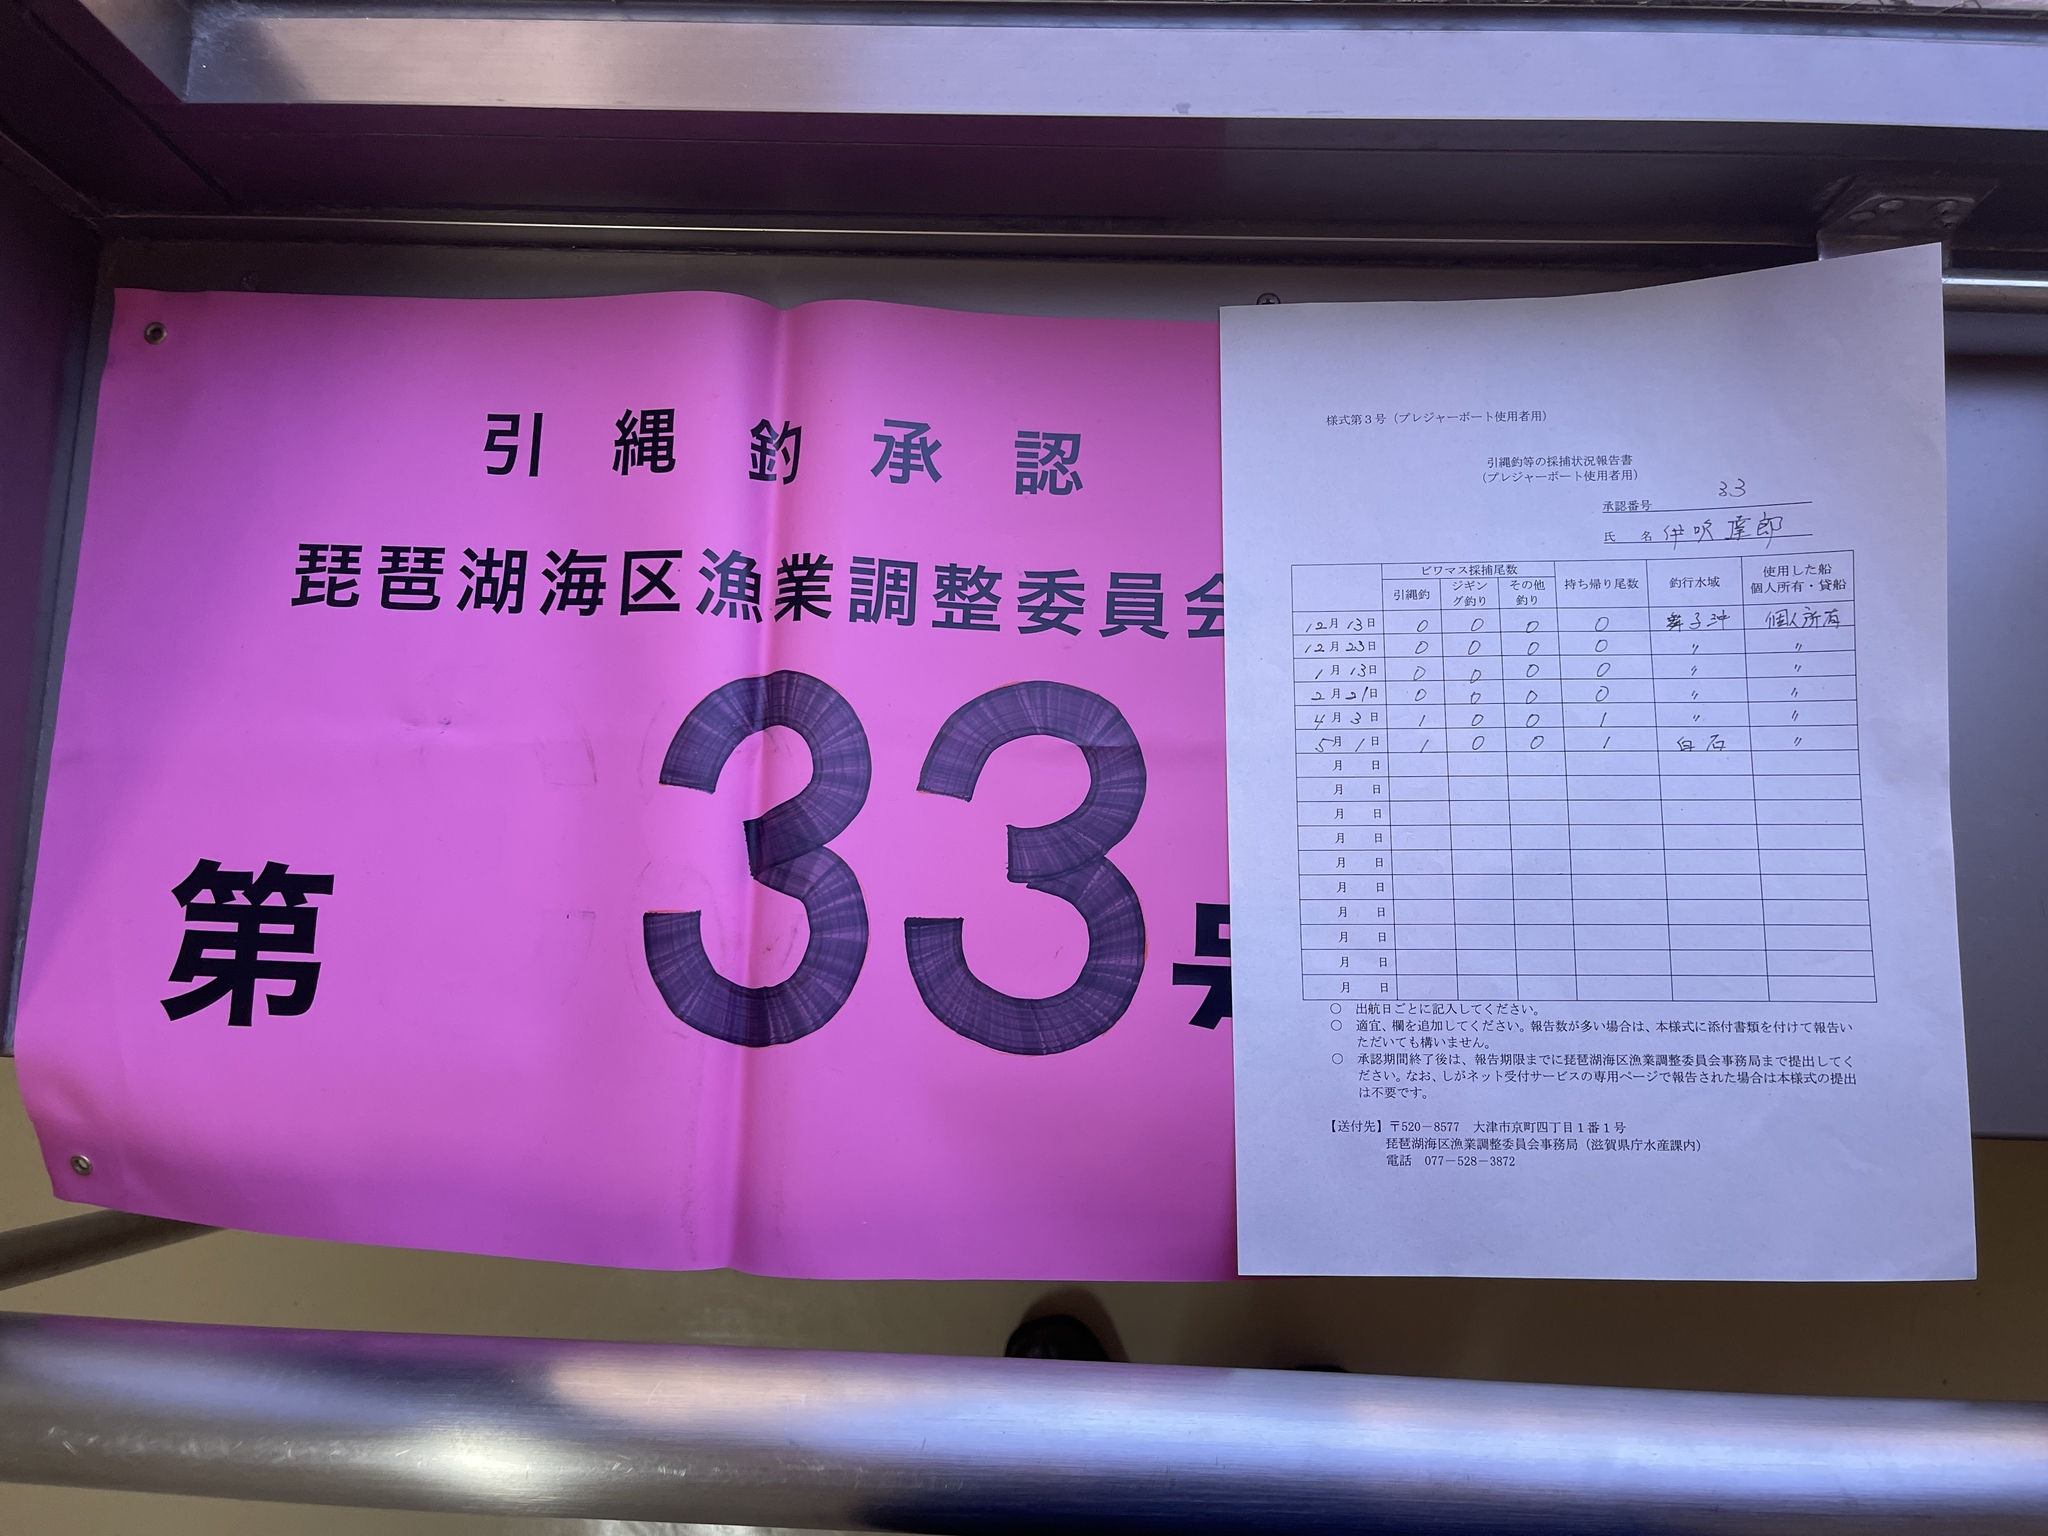 引縄釣承認
琵琶湖海区漁業調整委員会
第 33 号
様式第3号(プレジャーボート使用者用)
引縄釣等の採捕状況報告書
(プレジャーボート使用者用)
承認番号 33
氏 名 伊吹達郎
ビワマス採捕尾数 持ち帰り尾数 釣行水域 使用した船 個人所有・貸船
引縄釣 ジギング釣り その他釣り
12月13日 0 0 0 0 舞子沖 個人所有
12月23日 0 0 0 0 〃 〃
1月13日 0 0 0 0 〃 〃
2月21日 0 0 0 0 〃 〃
4月3日 1 0 0 1 〃 〃
5月1日 1 0 0 1 白石 〃
月 日
月 日
月 日
月 日
月 日
月 日
月 日
月 日
月 日
月 日
○ 出航日ごとに記入してください。
○ 適宜、欄を追加してください。報告数が多い場合は、本様式に添付書類を付けて報告い
ただいても構いません。
○ 承認期間終了後は、報告期限までに琵琶湖海区漁業調整委員会事務局まで提出してく
ださい。なお、しがネット受付サービスの専用ページで報告された場合は本様式の提出
は不要です。
【送付先】〒520-8577 大津市京町四丁目1番1号
琵琶湖海区漁業調整委員会事務局(滋賀県庁水産課内)
電話 077-528-3872